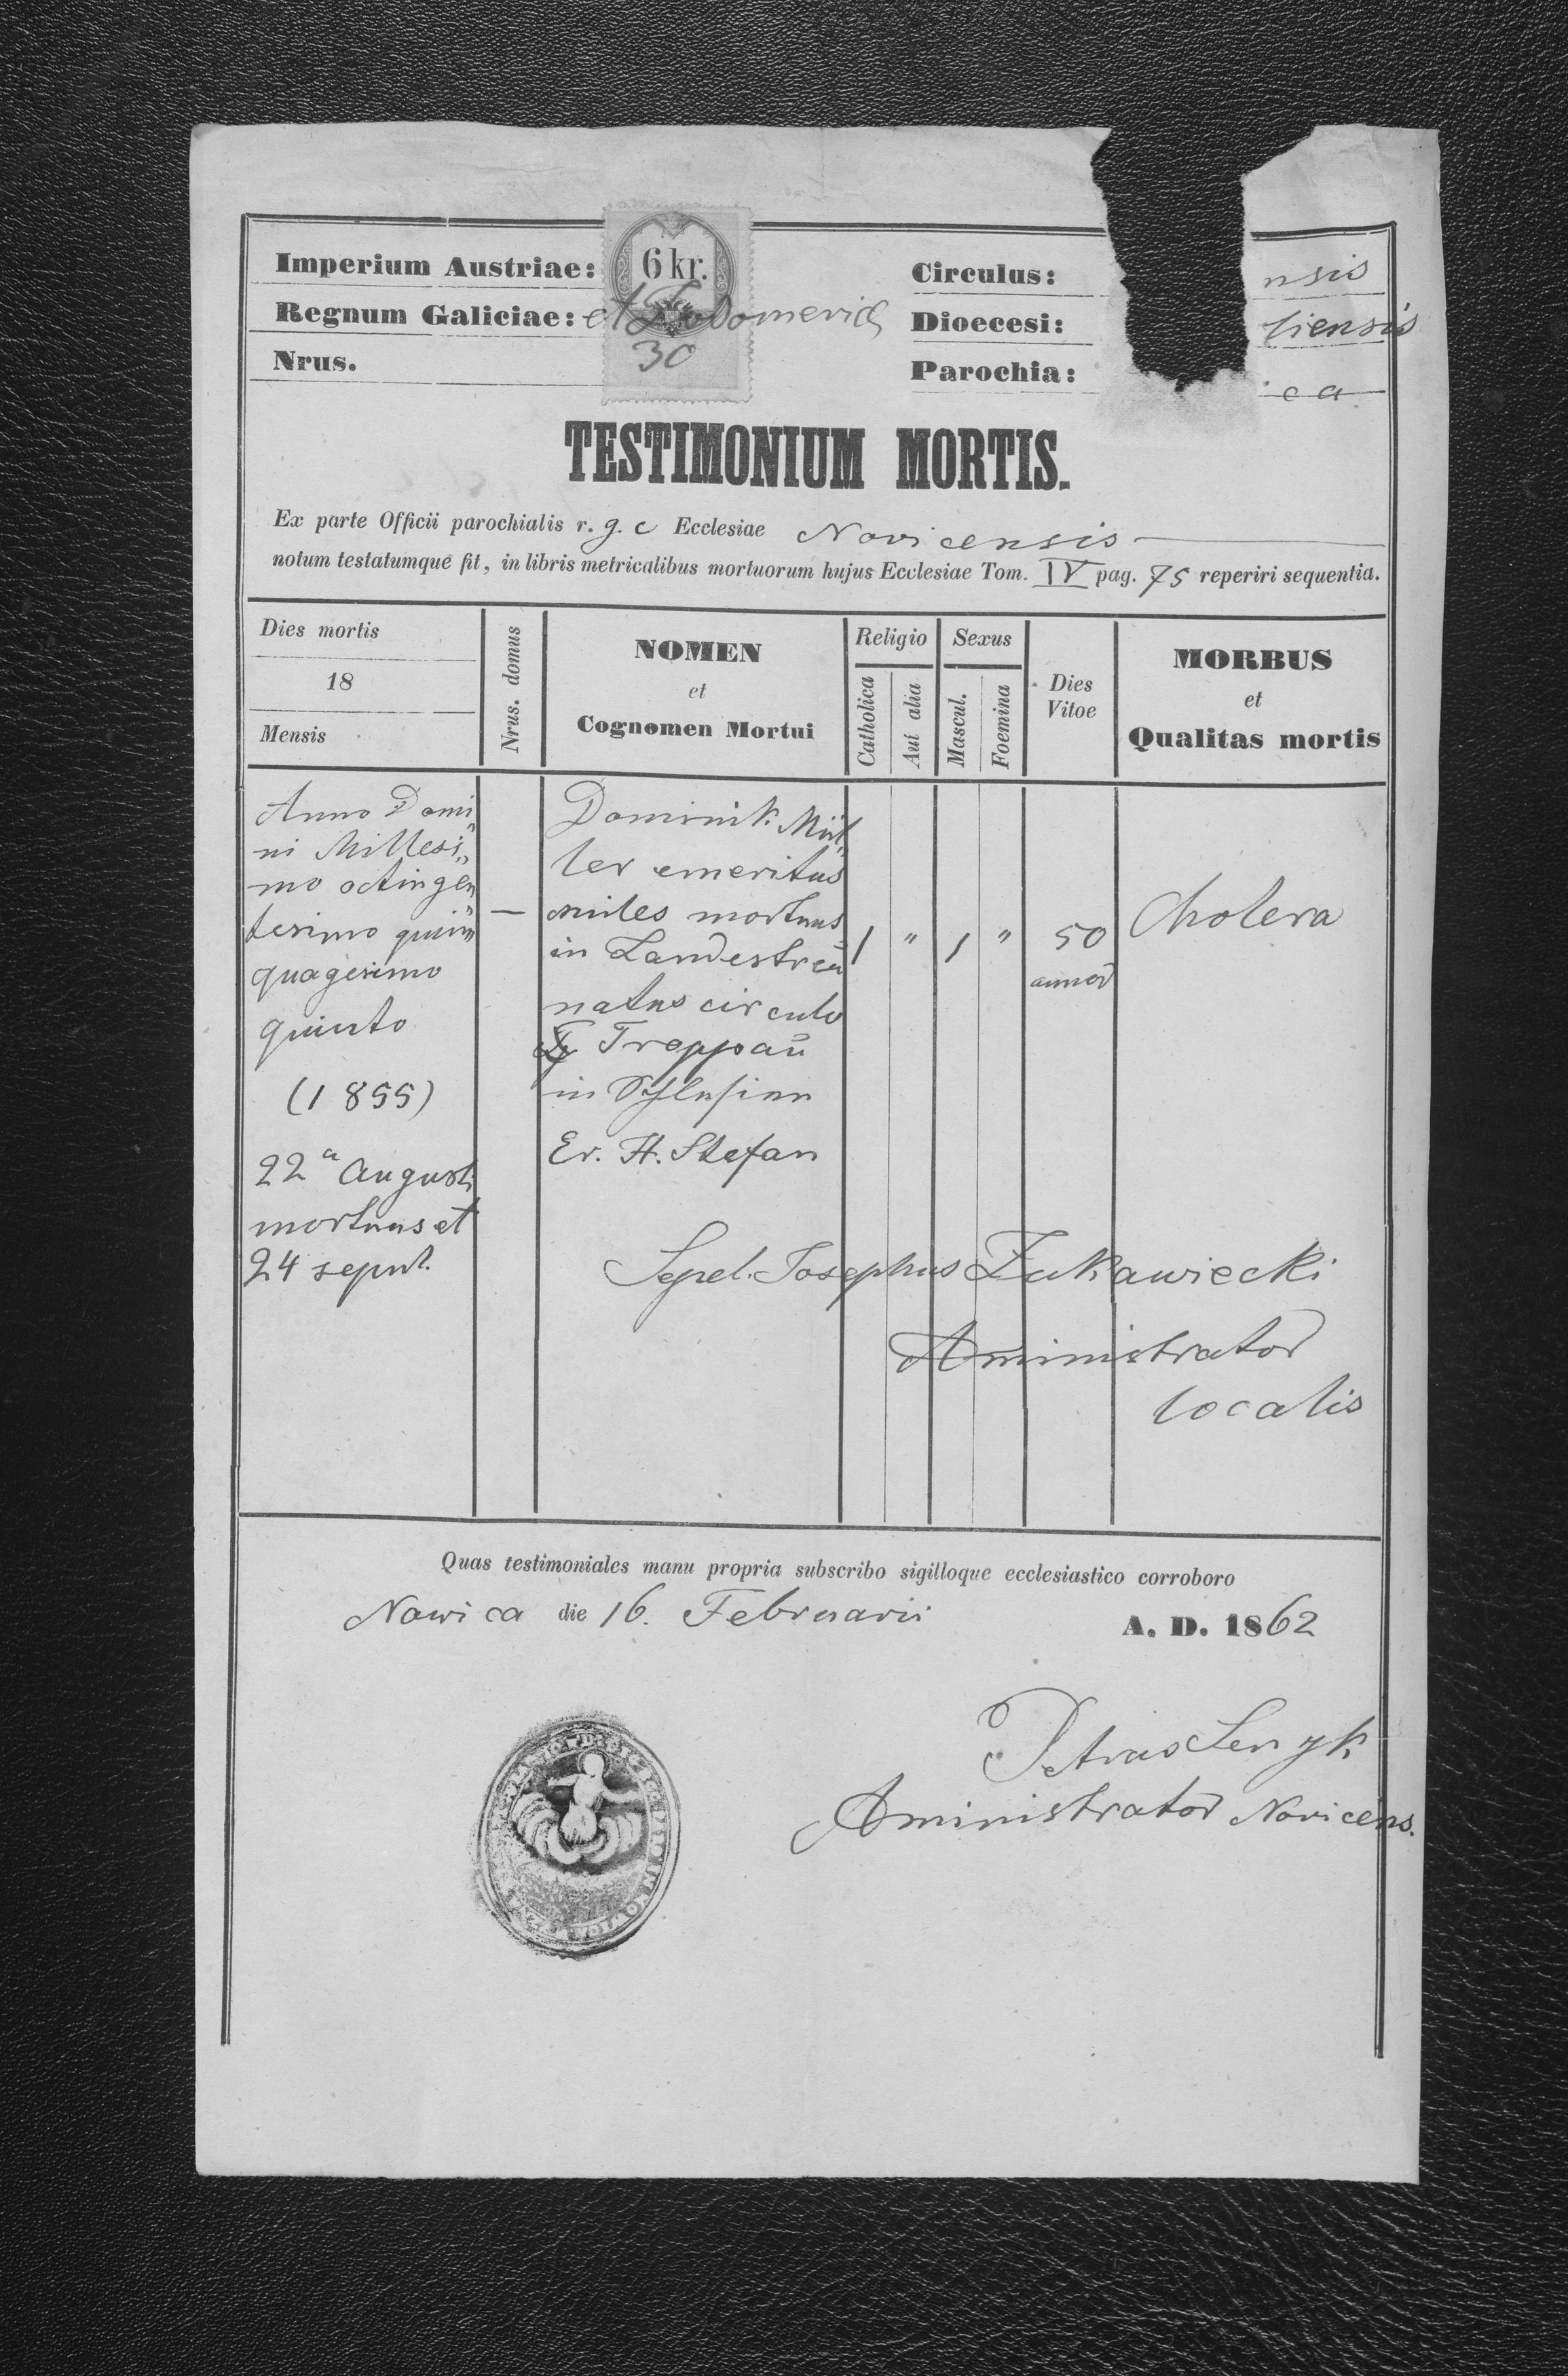 Imperium Austriae:
6 kr.
Circulus: nsis
Regnum Galiciae: et Lodomeriae
Dioecesi: liensis
Nrus. 30
Parochia: ca
TESTIMONIUM MORTIS.
Ex parte Officii parochialis r. g. c Ecclesiae Novicensis
notum testatumque fit, in libris metricalibus mortuorum hujus Ecclesiae Tom. IV pag. 75 reperiri sequentia.
Dies mortis
18
Mensis
Nrus. domus
NOMEN
et
Cognomen Mortui
Religio
Catholica
Aut alia
Sexus
Mascul.
Foemina
Dies
Vitoe
MORBUS
et
Qualitas mortis
Anno Domi„
ni Millesi„
mo octingen„
tesimo quin„
quagesimo
quinto
(1855)
22ª Augusti
mortuus et
24 sepul.
—
Dominik Mül„
ler emeritus
miles mortuus
in Landestreu
natus circulo
Troppau
in Schlesien
Er. H. Stefan
1
"
1
"
50
annor
Cholera
Sepel. Josephus Żukawiecki
Aministrator
localis
Quas testimoniales manu propria subscribo sigilloque ecclesiastico corroboro
Nowica die 16. Februarii A. D. 1862
Petrus Lenyk
Aministrator Novicens.